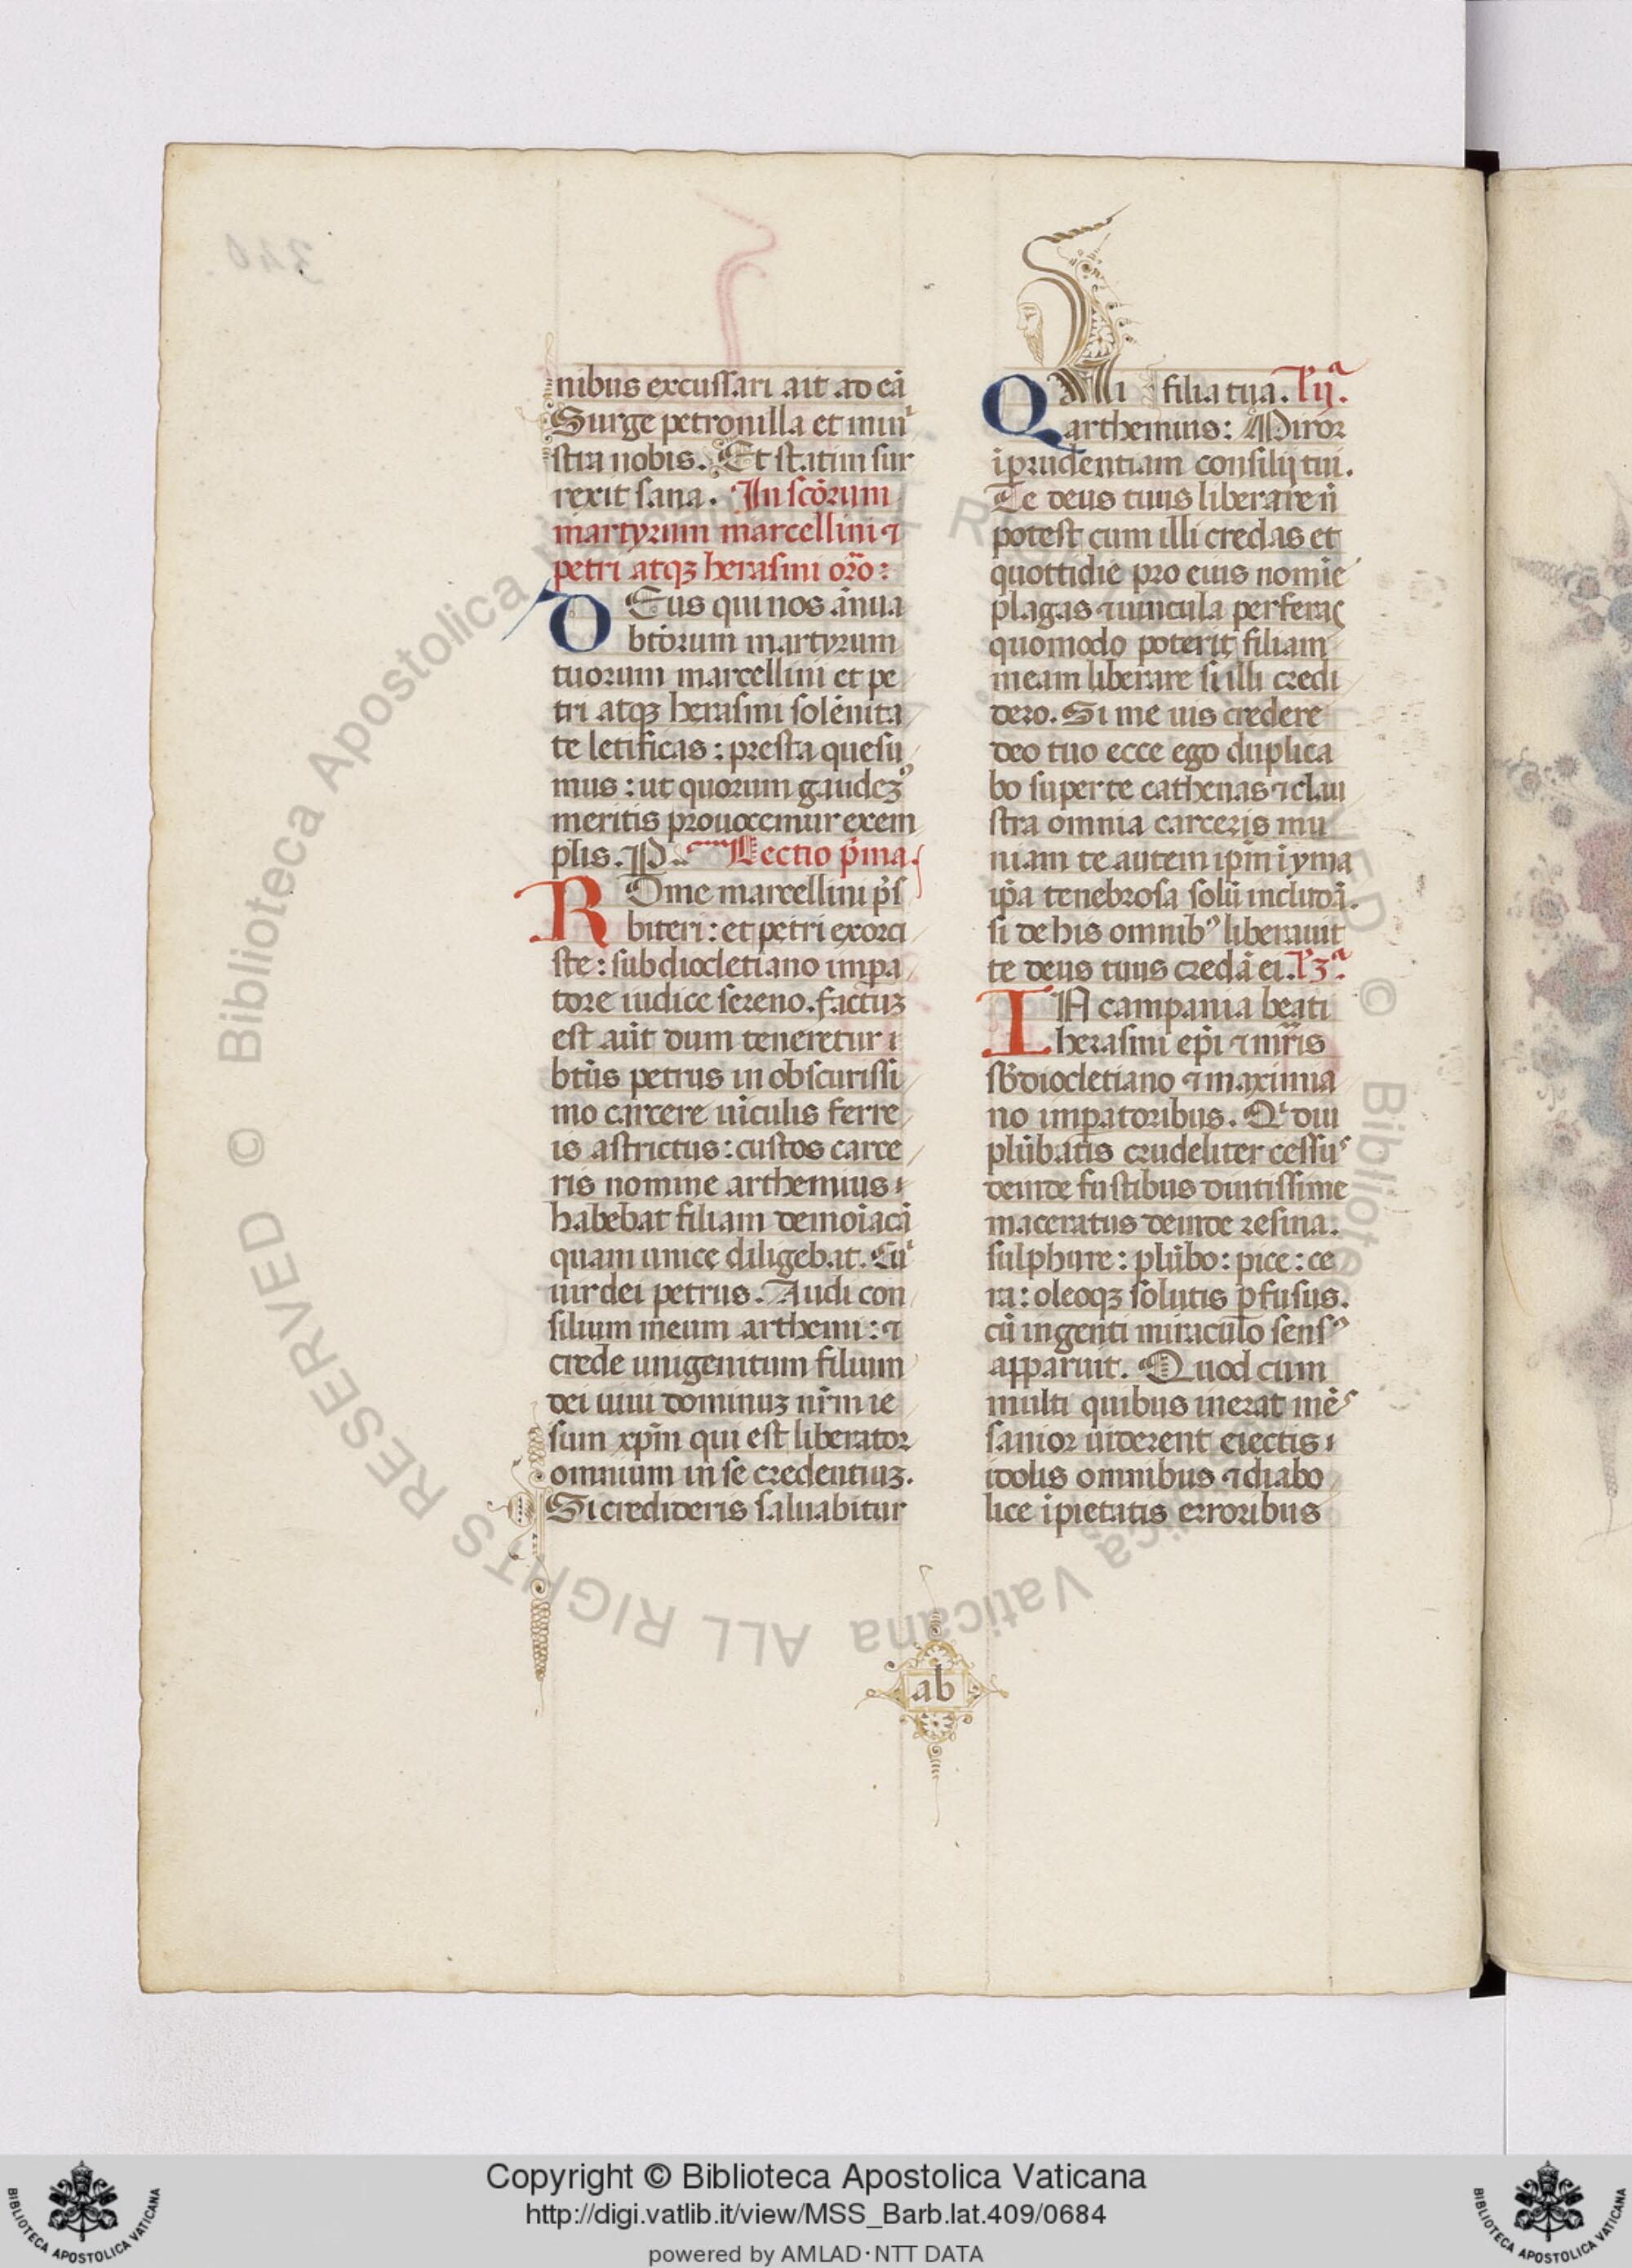 nibus excussari ait ad eā
Surge petronilla et minⁱ
stra nobis. Et statim sur
rexit sana. In scōrum
martyrum marcellini ⁊
petri atqꝫ herasini orō:
DEus qui nos ānua
btōrum martyrum
tuorum marcellini et pe
tri atqꝫ herasini solēnita
te letificas : presta quesu
mus : ut quorum gaudeꝫ
meritis prouocemur exem
plis. P. Lectio p̄ma.
ROme marcellini p̄s
biteri : et petri exorci
ste : sub diocletiano impa
tore iudice sereno. factuꝫ
est aūt dum teneretur
btūs petrus in obscurissi
mo carcere uīculis ferre
is astrictus : custos carce
ris nomine arthemius
habebat filiam demoīacā
quam unice diligebat. Cuⁱ
uir dei petrus. Audi con
silium meum arthemi : ⁊
crede unigenitum filium
dei uiui dominuꝫ nr̄m ie
sum xp̄m qui est liberator
omnium in se credentiuꝫ.
Si credideris saluabitur
filia tua. l' ijᵃ.
Q
arthemius : Miror
īprudentiam consilij tui.
Te deus tuus liberare ñ
potest cum illi credas et
quottidie pro eius nomīe
plagas ⁊ uincula perferaς
quomodo poterit filiam
meam liberare si illi credi
dero. Si me uis credere
deo tuo ecce ego duplica
bo super te cathenas ⁊ clau
stra omnia carceris mu
niam te autem ip̄m ī yma
ip̄a tenebrosa solū includā.
si de his omnibꝰ liberauit
te deus tuus credā ei. l' 3ᵃ.
IN campania beati
herasini ep̄i ⁊ mr̄is
sb̄ diocletiano ⁊ maximia
no imp̱atoribus. Qⁱ diu
plūbatis crudeliter cessuˢ
deinde fustibus diutissime
maceratus deinde resina.
sulphure : plūbo : pice : ce
ra : oleoqꝫ solutis ꝑfusus.
cū ingenti miraculo
apparuit. Quod cum
multi quibus inerat mēˢ
sanior uiderent eiectis
idolis omnibus ⁊ diabo
lice īpietatis erroribus
ab
© Biblioteca Apostolica Vaticana ALL RIGHTS RESERVED
Copyright © Biblioteca Apostolica Vaticana
http://digi.vatlib.it/view/MSS_Barb.lat.409/0684
powered by AMLAD·NTT DATA
BIBLIOTECA APOSTOLICA VATICANA
BIBLIOTECA APOSTOLICA VATICANA